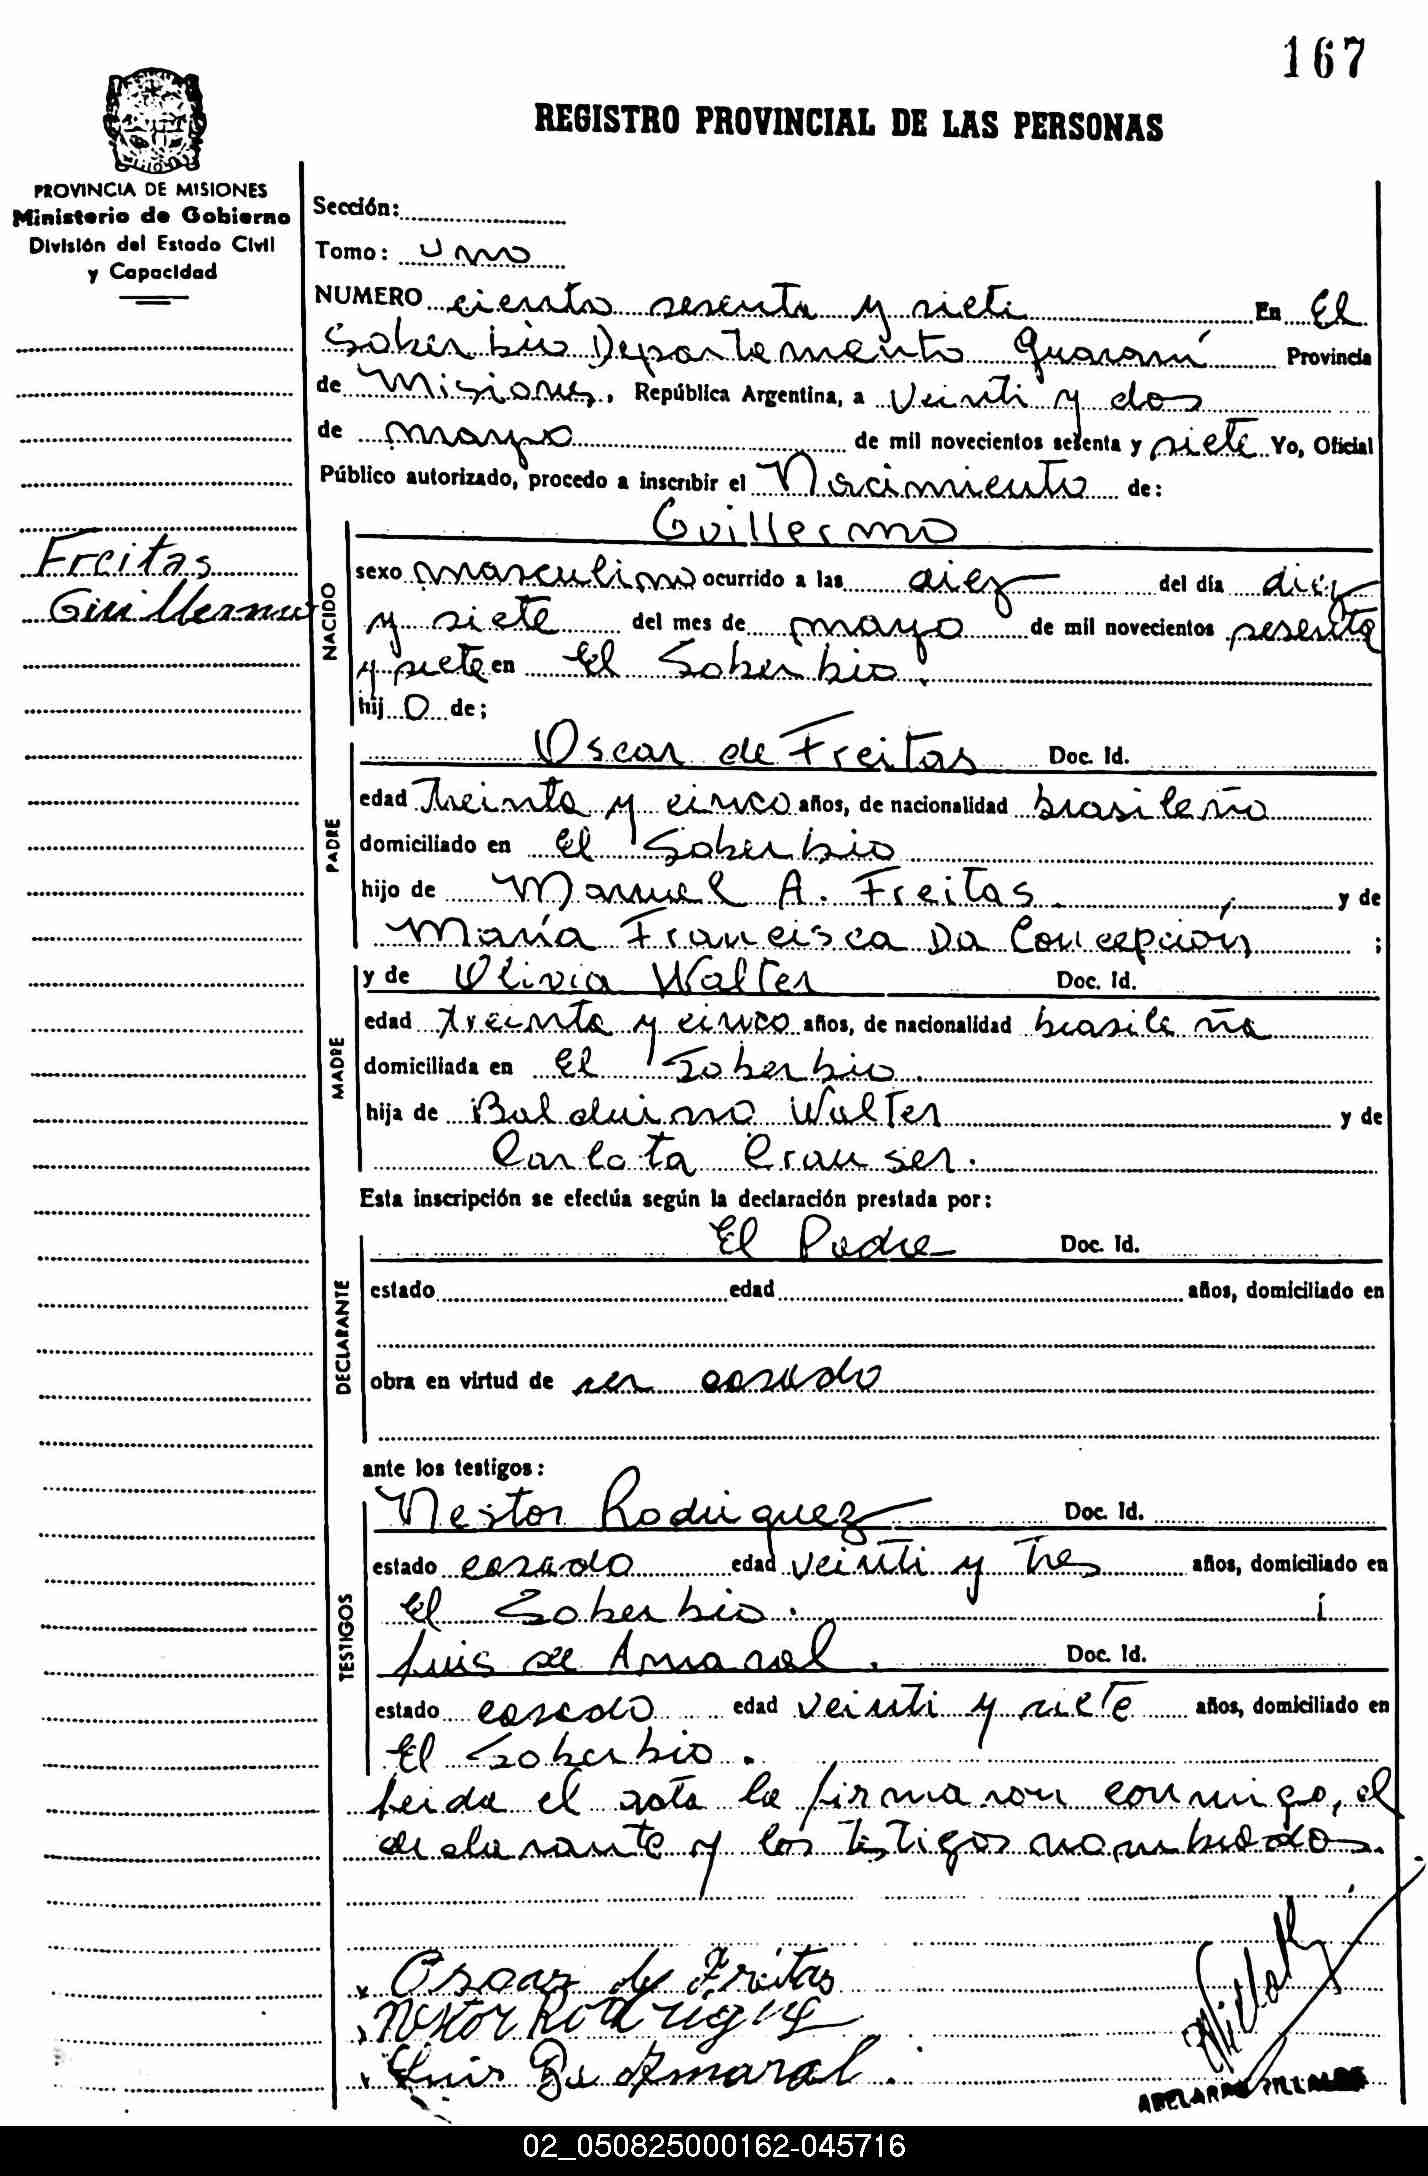 167
REGISTRO PROVINCIAL DE LAS PERSONAS
PROVINCIA DE MISIONES
Ministerio de Gobierno
División del Estado Civil
y Capacidad
Freitas
Guillermo
Sección:
Tomo: Uno
NUMERO ciento sesenta y siete En El
Soberbio Departamento Guaraní Provincia
de Misiones, República Argentina, a veinti y dos
de mayo de mil novecientos sesenta y siete Yo, Oficial
Público autorizado, procedo a inscribir el Nacimiento de:
NACIDO
Guillermo
sexo masculino ocurrido a las diez del día diez
y siete del mes de mayo de mil novecientos sesenta
y siete en El Soberbio.
hij o de;
PADRE
Oscar de Freitas Doc. Id.
edad treinta y cinco años, de nacionalidad brasileño
domiciliado en El Soberbio
hijo de Manuel A. Freitas. y de
María Francisca Da Concepción, ;
MADRE
y de Olivia Walter Doc. Id.
edad treinta y cinco años, de nacionalidad brasileña
domiciliada en El Soberbio.
hija de Balduino Walter y de
Carlota Crauser.
Esta inscripción se efectúa según la declaración prestada por:
DECLARANTE
El Padre Doc. Id.
estado edad años, domiciliado en
obra en virtud de ser casado
ante los testigos:
TESTIGOS
Nestor Rodriguez Doc. Id.
estado casado edad veinti y tres años, domiciliado en
El Soberbio. i
Luis de Amaral. Doc. Id.
estado casado edad veinti y siete años, domiciliado en
El Soberbio.
Leida el acta la firmaron conmigo, el
declarante y los testigos nombrados.
Oscar de Freitas
Nestor Rodriguez
Luis De Amaral.
02_050825000162-045716